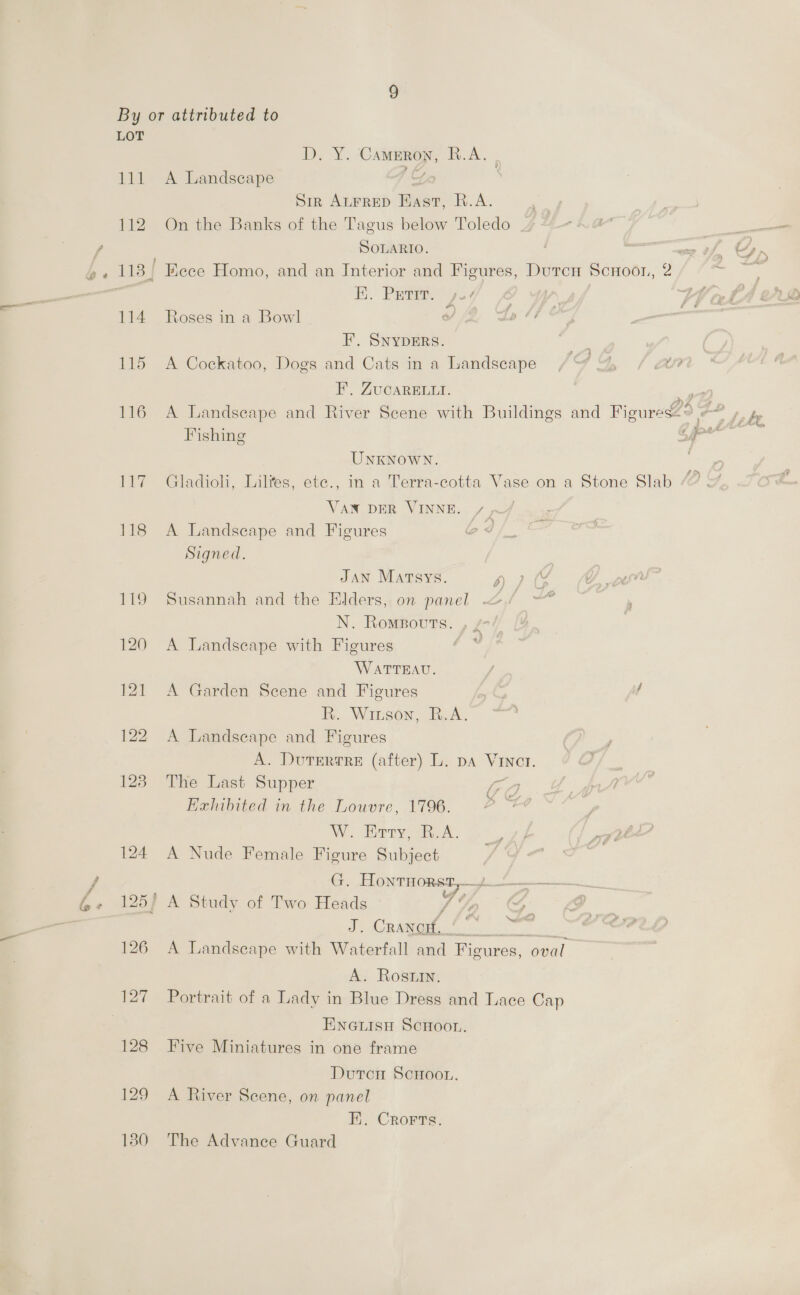 9
By or attributed to
LOT
D. Y. CAMERON, R.A.
111 A Landscape
SIR ALFRED EAST, R.A.
112 On the Banks of the Tagus below Toledo
SOLARIO.
113 Ecce Homo, and an Interior and Figures, DUTCH SCHOOL, 2
E. PETIT.
114 Roses in a Bowl
F. SNYDERS.
115 A Cockatoo, Dogs and Cats in a Landscape
F. ZUCARELLI.
116 A Landscape and River Scene with Buildings and Figures
Fishing
UNKNOWN.
117 Gladioli, Lilies, etc., in a Terra-cotta Vase on a Stone Slab
VAN DER VINNE.
118 A Landscape and Figures
Signed.
JAN MATSYS.
119 Susannah and the Elders, on panel
N. ROMBOUTS.
120 A Landscape with Figures
WATTEAU.
121 A Garden Scene and Figures
R. WILSON, R.A.
122 A Landscape and Figures
A. DUTERTRE (after) L. DA VINCI.
123 The Last Supper
Exhibited in the Louvre, 1796.
W. ETTY, R.A.
124 A Nude Female Figure Subject
G. HONTHORST,
125 A Study of Two Heads
J. CRANCH.
126 A Landscape with Waterfall and Figures, oval
A. ROSLIN.
127 Portrait of a Lady in Blue Dress and Lace Cap
ENGLISH SCHOOL.
128 Five Miniatures in one frame
DUTCH SCHOOL.
129 A River Scene, on panel
E. CROFTS.
130 The Advance Guard